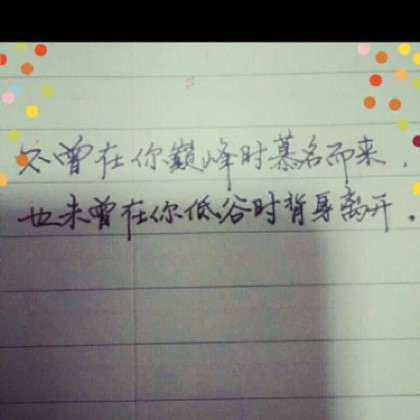 不曾在你巅峰时慕名而来，
也未曾在你低谷时背身离开。